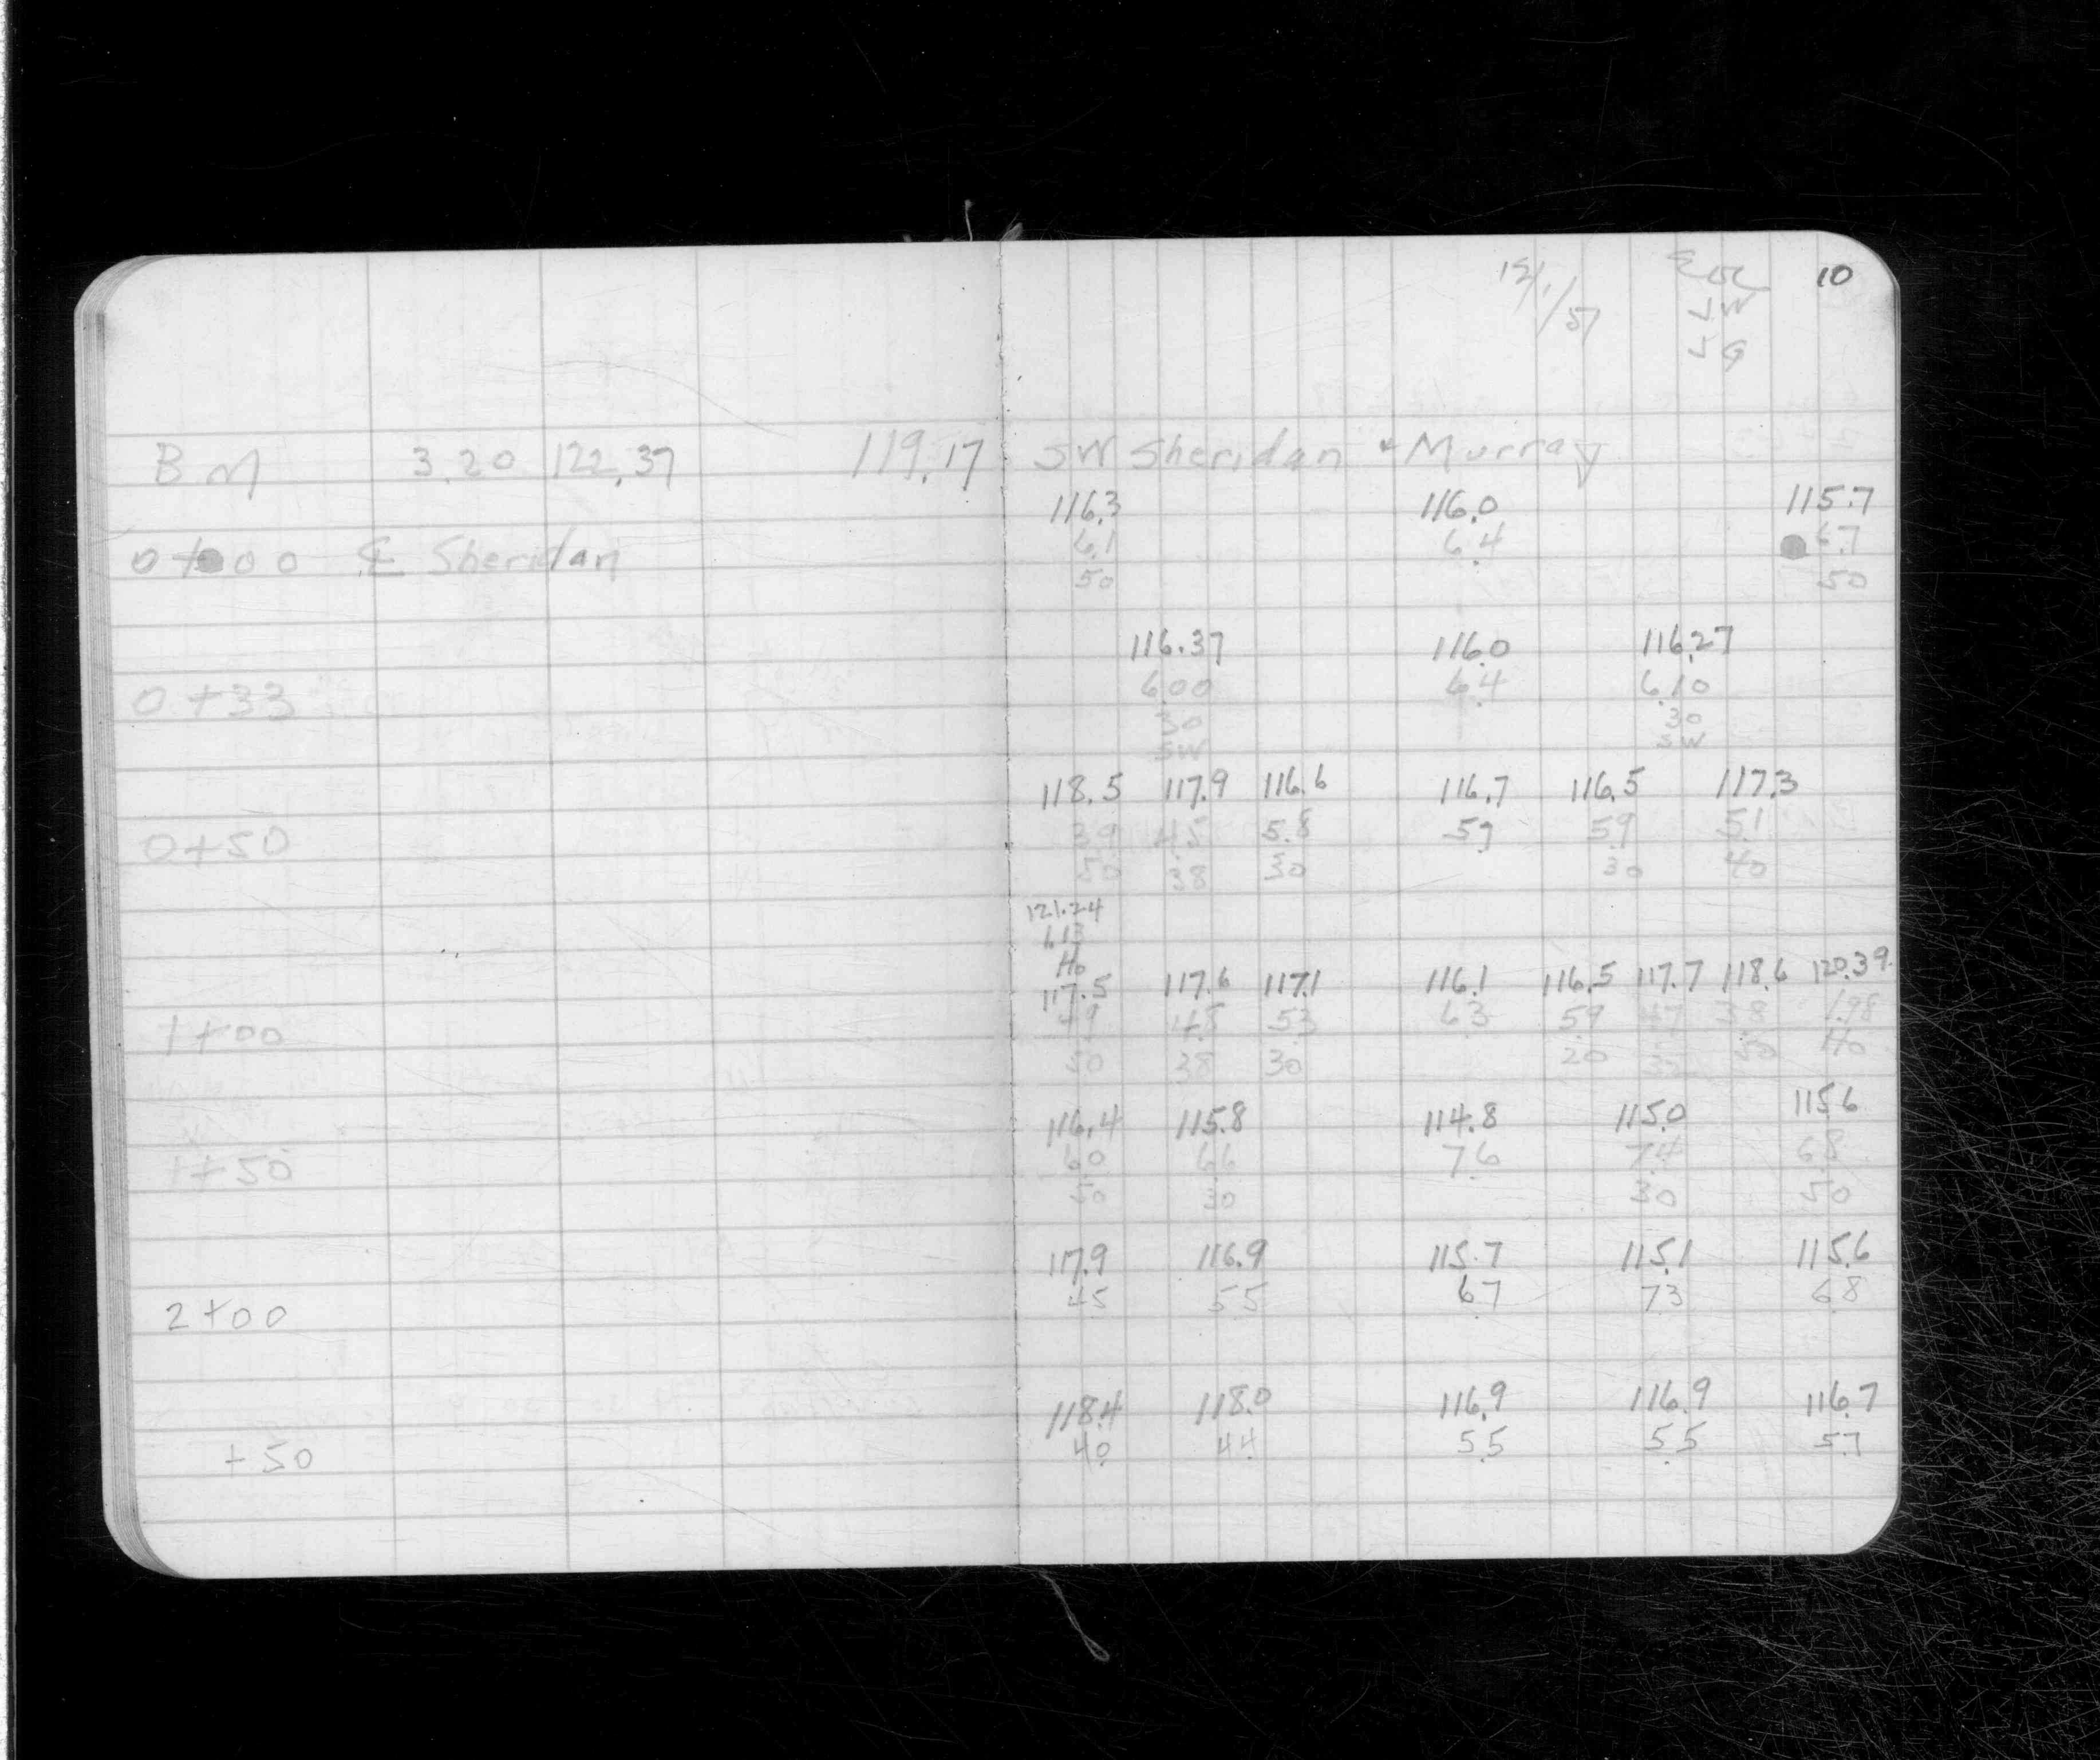 12/1/57 10
LW
LG
BM 3.20 122.37 119.17 SW Sheridan + Murray
116.3 116.0 115.7
0+00 ℄ Sheridan 6.1 6.4 6.7
50 50
116.37 116.0 116.27
0+33 6.00 6.4 6.10
30 30
SW SW
118.5 117.9 116.6 116.7 116.5 117.3
0+50 3.9 4.5 5.8 5.7 5.9 5.1
50 38 30 30 40
121.24
1.13
Ho
117.5 117.6 117.1 116.1 116.5 117.7 118.6 120.39
1+00 4.9 4.5 5.3 6.3 5.9 4.7 3.8 1.98
50 38 30 20 32 50 Ho
116.4 115.8 114.8 115.0 115.6
1+50 6.0 6.6 7.6 7.4 6.8
50 30 30 50
117.9 116.9 115.7 115.1 115.6
2+00 4.5 5.5 6.7 7.3 6.8
118.4 118.0 116.9 116.9 116.7
+50 4.0 4.4 5.5 5.5 5.7